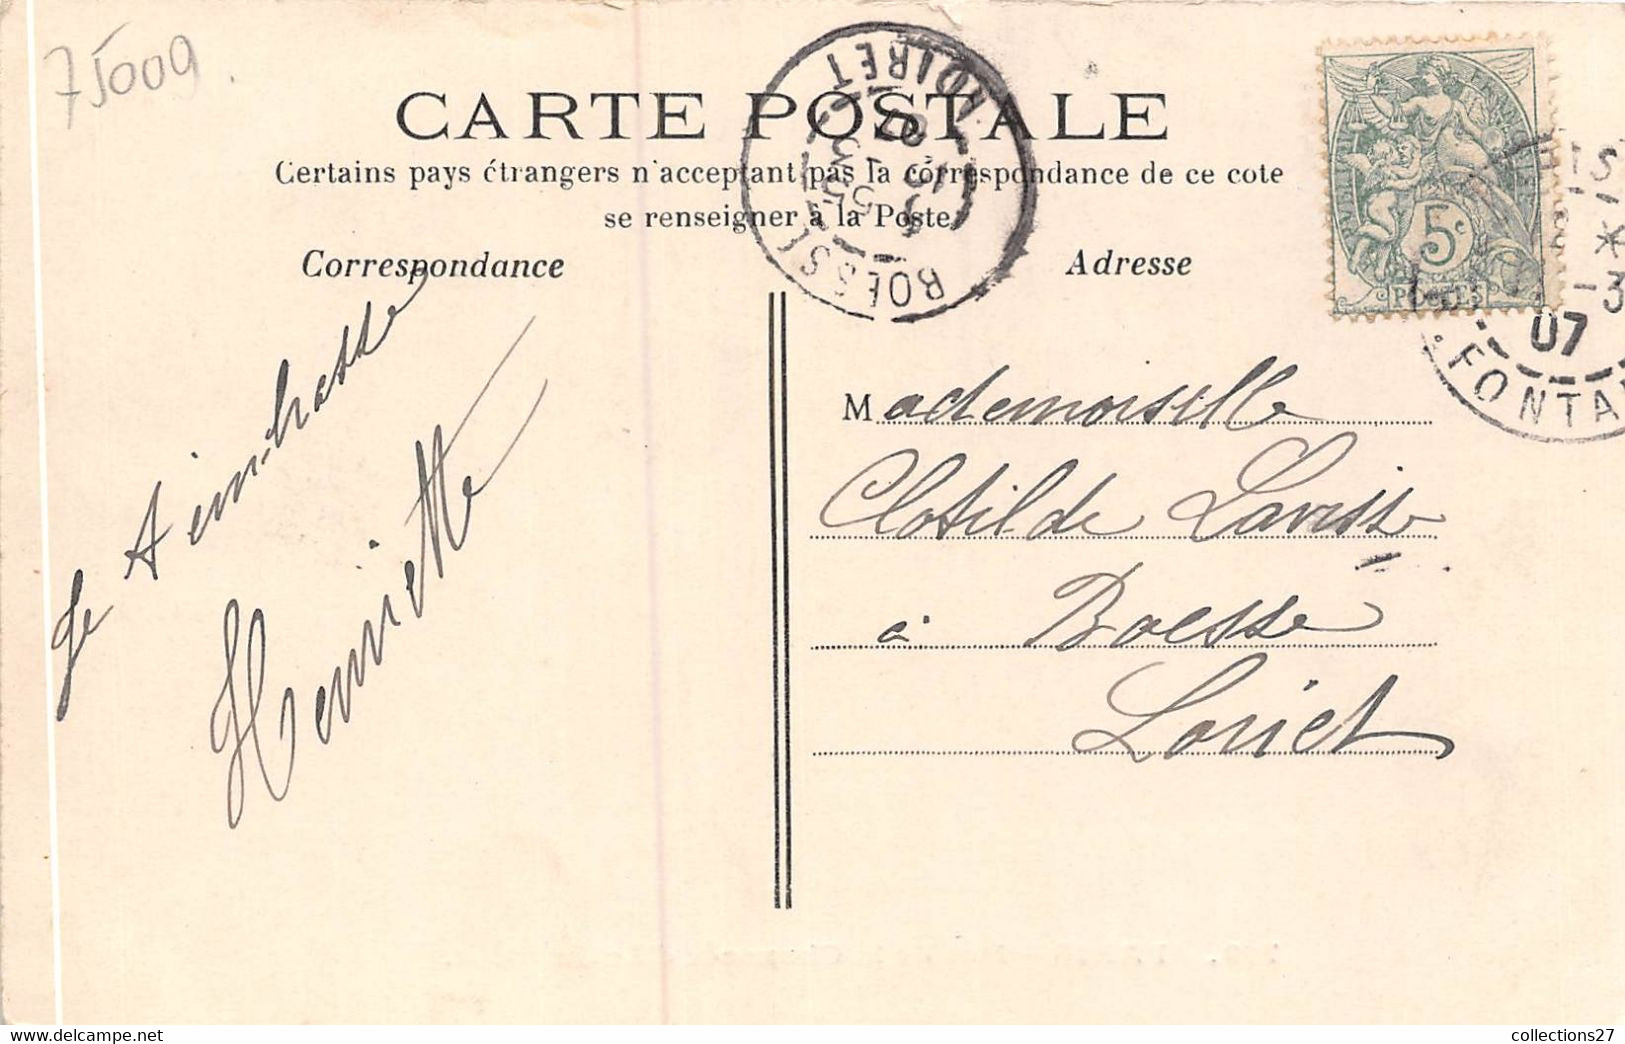 75009.
CARTE POSTALE
Certains pays étrangers n'acceptant pas la correspondance de ce cote
se renseigner à la Poste
Correspondance
Adresse
BOESSE LOIRET
07
5c
POSTES
-3
07
FONTA
Je t'embrasse
Henriette
Mademoiselle
Clotilde Lavisse
à Boesse
Loiret
collections27